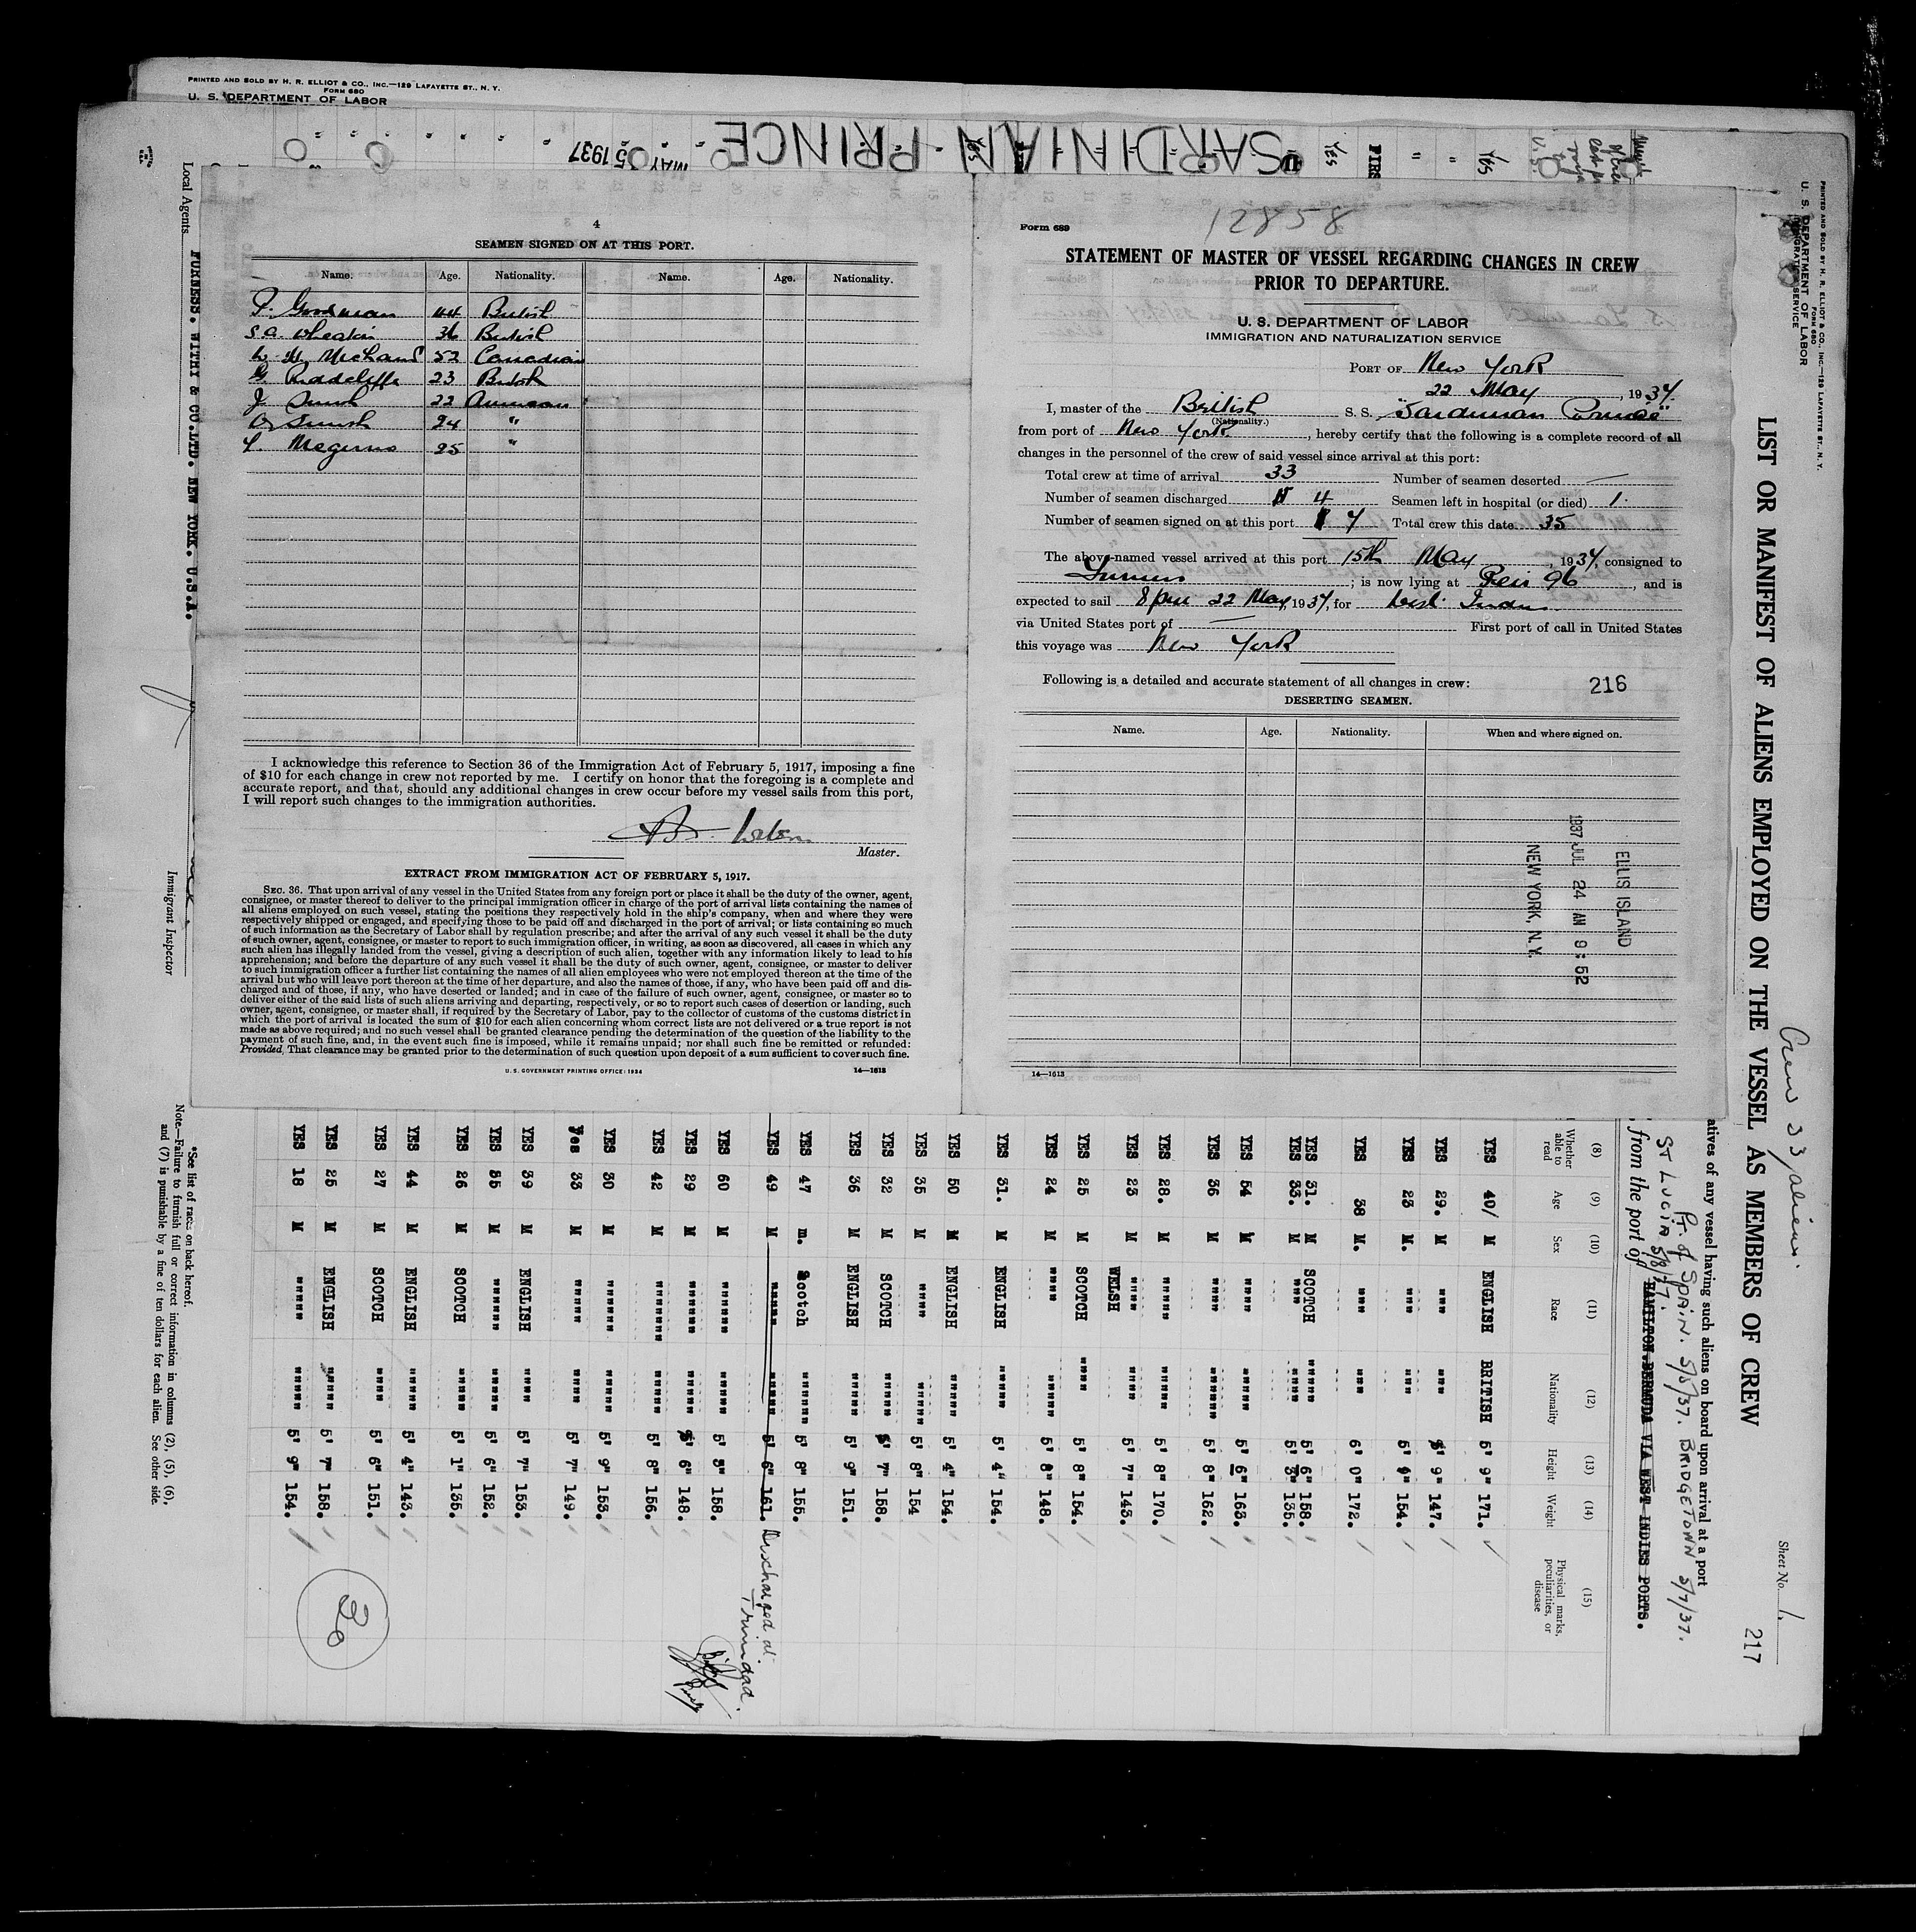 PRINTED AND SOLD BY H. R. ELLIOT & CO., INC.—129 LAFAYETTE ST., N. Y.
FORM 680
U. S. DEPARTMENT OF LABOR
SARDINIAN PRINCE
MAY 15 1937
Local Agents
FURNESS. WITHY & CO.LTD. NEW YORK. U.S.A.
Immigrant Inspector
4
SEAMEN SIGNED ON AT THIS PORT.
Name. Age. Nationality. Name. Age. Nationality.
P. Goodman 44 British
S A Wheakin 36 British
52 Canadian
G. Raddcliffe 23 British
J 22 American
24 "
25 "
I acknowledge this reference to Section 36 of the Immigration Act of February 5, 1917, imposing a fine
of $10 for each change in crew not reported by me. I certify on honor that the foregoing is a complete and
accurate report, and that, should any additional changes in crew occur before my vessel sails from this port,
I will report such changes to the immigration authorities.
Master.
EXTRACT FROM IMMIGRATION ACT OF FEBRUARY 5, 1917.
SEC. 36. That upon arrival of any vessel in the United States from any foreign port or place it shall be the duty of the owner, agent,
consignee, or master thereof to deliver to the principal immigration officer in charge of the port of arrival lists containing the names of
all aliens employed on such vessel, stating the positions they respectively hold in the ship's company, when and where they were
respectively shipped or engaged, and specifying those to be paid off and discharged in the port of arrival; or lists containing so much
of such information as the Secretary of Labor shall by regulation prescribe; and after the arrival of any such vessel it shall be the duty
of such owner, agent, consignee, or master to report to such immigration officer, in writing, as soon as discovered, all cases in which any
such alien has illegally landed from the vessel, giving a description of such alien, together with any information likely to lead to his
apprehension; and before the departure of any such vessel it shall be the duty of such owner, agent, consignee, or master to deliver
to such immigration officer a further list containing the names of all alien employees who were not employed thereon at the time of the
arrival but who will leave port thereon at the time of her departure, and also the names of those, if any, who have been paid off and dis-
charged and of those, if any, who have deserted or landed; and in case of the failure of such owner, agent, consignee, or master so to
deliver either of the said lists of such aliens arriving and departing, respectively, or so to report such cases of desertion or landing, such
owner, agent, consignee, or master shall, if required by the Secretary of Labor, pay to the collector of customs of the customs district in
which the port of arrival is located the sum of $10 for each alien concerning whom correct lists are not delivered or a true report is not
made as above required; and no such vessel shall be granted clearance pending the determination of the question of the liability to the
payment of such fine, and, in the event such fine is imposed, while it remains unpaid; nor shall such fine be remitted or refunded:
Provided, That clearance may be granted prior to the determination of such question upon deposit of a sum sufficient to cover such fine.
U. S. GOVERNMENT PRINTING OFFICE: 1934 14—1613
Form 689
12858
STATEMENT OF MASTER OF VESSEL REGARDING CHANGES IN CREW
PRIOR TO DEPARTURE.
U. S. DEPARTMENT OF LABOR
IMMIGRATION AND NATURALIZATION SERVICE
PORT OF New York
22 May, 1937.
I, master of the British S. S. "Sardinian Prince"
(Nationality.)
from port of New York, hereby certify that the following is a complete record of all
changes in the personnel of the crew of said vessel since arrival at this port:
Total crew at time of arrival 33 Number of seamen deserted —
Number of seamen discharged 4 Seamen left in hospital (or died) 1.
Number of seamen signed on at this port 7 Total crew this date 35
The above-named vessel arrived at this port 15th May, 1937, consigned to
Furness; is now lying at Pier 96, and is
expected to sail 8 pm 22 May, 1937, for West Indies
via United States port of — First port of call in United States
this voyage was New York
Following is a detailed and accurate statement of all changes in crew: 216
DESERTING SEAMEN.
Name. Age. Nationality. When and where signed on.
ELLIS ISLAND
1937 JUL 24 AM 9:52
NEW YORK, N.Y.
14—1613
PRINTED AND SOLD BY H. R. ELLIOT & CO., INC.—129 LAFAYETTE ST., N. Y.
FORM 680
U. S. DEPARTMENT OF LABOR
IMMIGRATION SERVICE
Sheet No. 1.
217
Crew 33 aliens.
LIST OR MANIFEST OF ALIENS EMPLOYED ON THE VESSEL AS MEMBERS OF CREW
atives of any vessel having such aliens on board upon arrival at a port
Pt. of SPAIN. 5/5/37. BRIDGETOWN 5/7/37.
ST LUCIA 5/8/37.
from the port of HAMILTON.BERMUDA VIA WEST INDIES PORTS.
(8) (9) (10) (11) (12) (13) (14) (15)
Whether able to read Age Sex Race Nationality Height Weight Physical marks, peculiarities, or disease
YES 40/ M ENGLISH BRITISH 5' 9" 171.
YES 29. M """ """ 5' 9" 147.
YES 23 M. """ """ 5' 9" 154.
YES 38 M. """ """ 6' 0" 172.
YES 31. M SCOTCH """"" 5' 6" 158.
YES 33. M """ """" 5' 3" 135.
YES 54 M """" """"" 5' 6" 163.
YES 36 M """" """""" 5' 8" 162.
YES 28. M """"" """"" 5' 8" 170.
YES 23 M WELSH """" 5' 7" 143.
YES 25 M SCOTCH """" 5' 8" 154.
YES 24 M """" """"" 5' 8" 148.
YES 31. M ENGLISH """"" 5' 4" 154.
YES 50 M ENGLISH """"" 5' 4" 154.
YES 35 M """" """"" 5' 8" 154
YES 32 M SCOTCH """"" 5' 7" 158.
YES 36 M ENGLISH """"" 5' 9" 151.
YES 47 m. Scotch """""" 5' 8" 155.
YES 49 M """"" """"" 5' 6" 161. Discharged at Trinidad.
YES 60 M """""" """"" 5' 3" 158.
YES 29 M """""" """"" 5' 6" 148.
YES 42 M """"""" """"" 5' 8" 156.
YES 30 M """""" """"" 5' 9" 153.
Yes 33 M """"" """" 5' 7" 149.
YES 39 M ENGLISH """" 5' 7" 153.
YES 55 M """""" """"" 5' 6" 152.
YES 26 M SCOTCH """"" 5' 1" 135.
YES 44 M ENGLISH """"" 5' 4" 143.
YES 27 M SCOTCH """" 5' 6" 151.
YES 25 M ENGLISH """"" 5' 7" 158.
YES 18 M """"" """"" 5' 9" 154.
30
*See list of races on back hereof.
Note.—Failure to furnish full or correct information in columns (2), (5), (6),
and (7) is punishable by a fine of ten dollars for each alien. See other side.